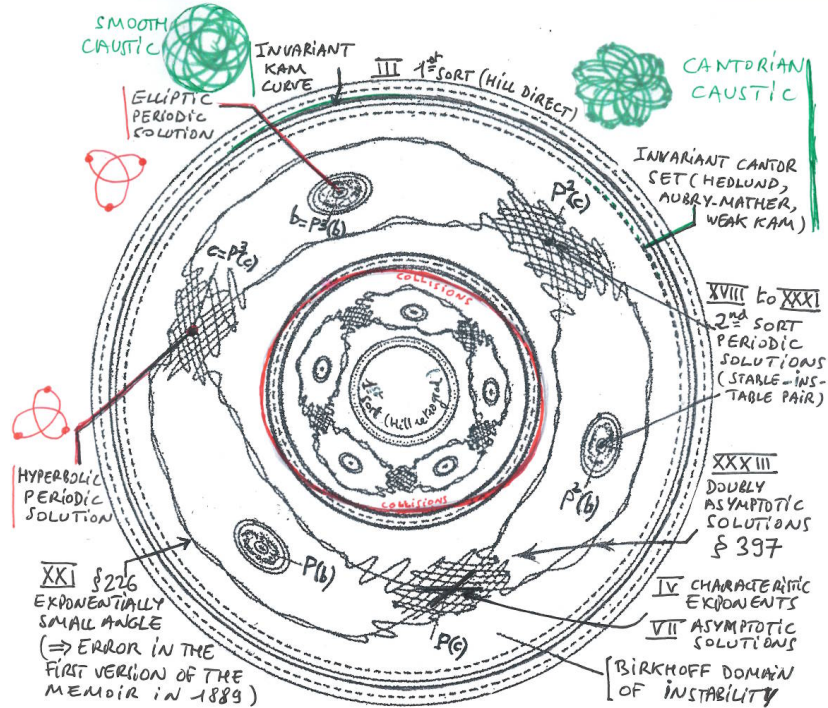 SMOOTH
CAUSTIC
INVARIANT
KAM
CURVE
III 1st SORT (HILL DIRECT)
CANTORIAN
CAUSTIC
ELLIPTIC
PERIODIC
SOLUTION
INVARIANT CANTOR
SET (HEDLUND,
AUBRY-MATHER,
WEAK KAM)
b=P³(b)
P²(c)
c=P³(c)
COLLISIONS
XVIII to XXXI
2nd SORT
PERIODIC
SOLUTIONS
(STABLE-INS-
TABLE PAIR)
1st
Sort (Hill retrograd)
HYPERBOLIC
PERIODIC
SOLUTION
P²(b)
COLLISIONS
XXXIII
DOUBLY
ASYMPTOTIC
SOLUTIONS
§ 397
P(b)
P(c)
XXI §226
EXPONENTIALLY
SMALL ANGLE
(⇒ ERROR IN THE
FIRST VERSION OF THE
MEMOIR IN 1889)
IV CHARACTERISTIC
EXPONENTS
VII ASYMPTOTIC
SOLUTIONS
[BIRKHOFF DOMAIN
OF INSTABILITY